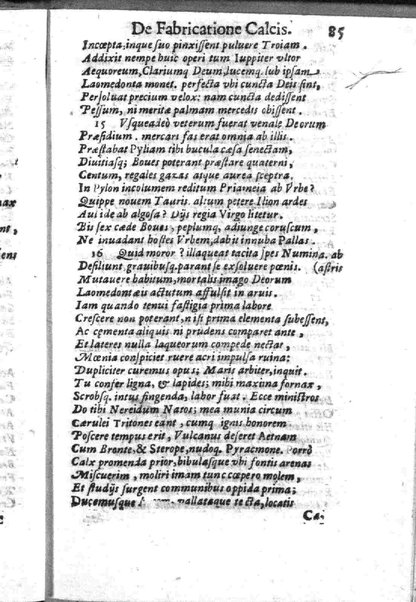 De Fabricatione Calcis. 85
Incœpta, inque suo pinxissent puluere Troiam.
Addixit nempe huic operi tum Iuppiter vltor
Aequoreum, Clariumq; Deum, lucemq. sub ipsam
Laomedonta monet. perfecta vbi cuncta Deis sint,
Persoluat precium velox: nam cuncta dedissent
Pessum, ni merita palmam mercedis obissent.
15 Vsqueadeò veterum fuerat venale Deorum
Præsidium. mercari fas erat omnia ab illis.
Præstabat Pyliam tibi bucula cæsa senectam,
Diuitiasq; Boues poterant præstare quaterni,
Centum, regales gazas atque aurea sceptra.
In Pylon incolumem reditum Priameia ab Vrbe?
Quippe nouem Tauris. altum petere Ilion ardes
Aui ide ab algosa? Dijs regia Virgo litetur.
Bis sex cæde Boues, peplumq, adiunge coruscum,
Ne inuadant hostes Vrbem, dabit innuba Pallas.
16 Quid moror? illaqueat tacita spes Numina. ab
Desiliunt grauibusq, parant se exsoluere pœnis. (astris
Mutauere habitum, mortalis imago Deorum
Laomedontæis actutum affulsit in aruis.
Iam quando tenus fastigia prima labore
Crescere non poterant, nisi prima elementa subessent,
Ac cementa aliquis ni prudens comparet ante,
Et lateres nulla laqueorum compede nectat,
Mœnia conspicies ruere acri impulsa ruina:
Dupliciter curemus opus; Maris arbiter, inquit.
Tu confer ligna, & lapides; mihi maxima fornax,
Scrobsq. intus fingenda, labor fuat. Ecce ministros
Do tibi Nereidum Natos; mea munia circum
Cærulei Tritones eant, cumq ignis honorem
Poscere tempus erit, Vulcanus deseret Aetnam
Cum Bronte, & Sterope, nudoq. Pyracmone. Porrò
Calx promenda prior, bibulasque vbi fontis arenas
Miscuerim, moliri imam tunc cœpero molem,
Et studijs surgent communibus oppida prima;
Ducemusque pallataque tecta, locatis
Ca-